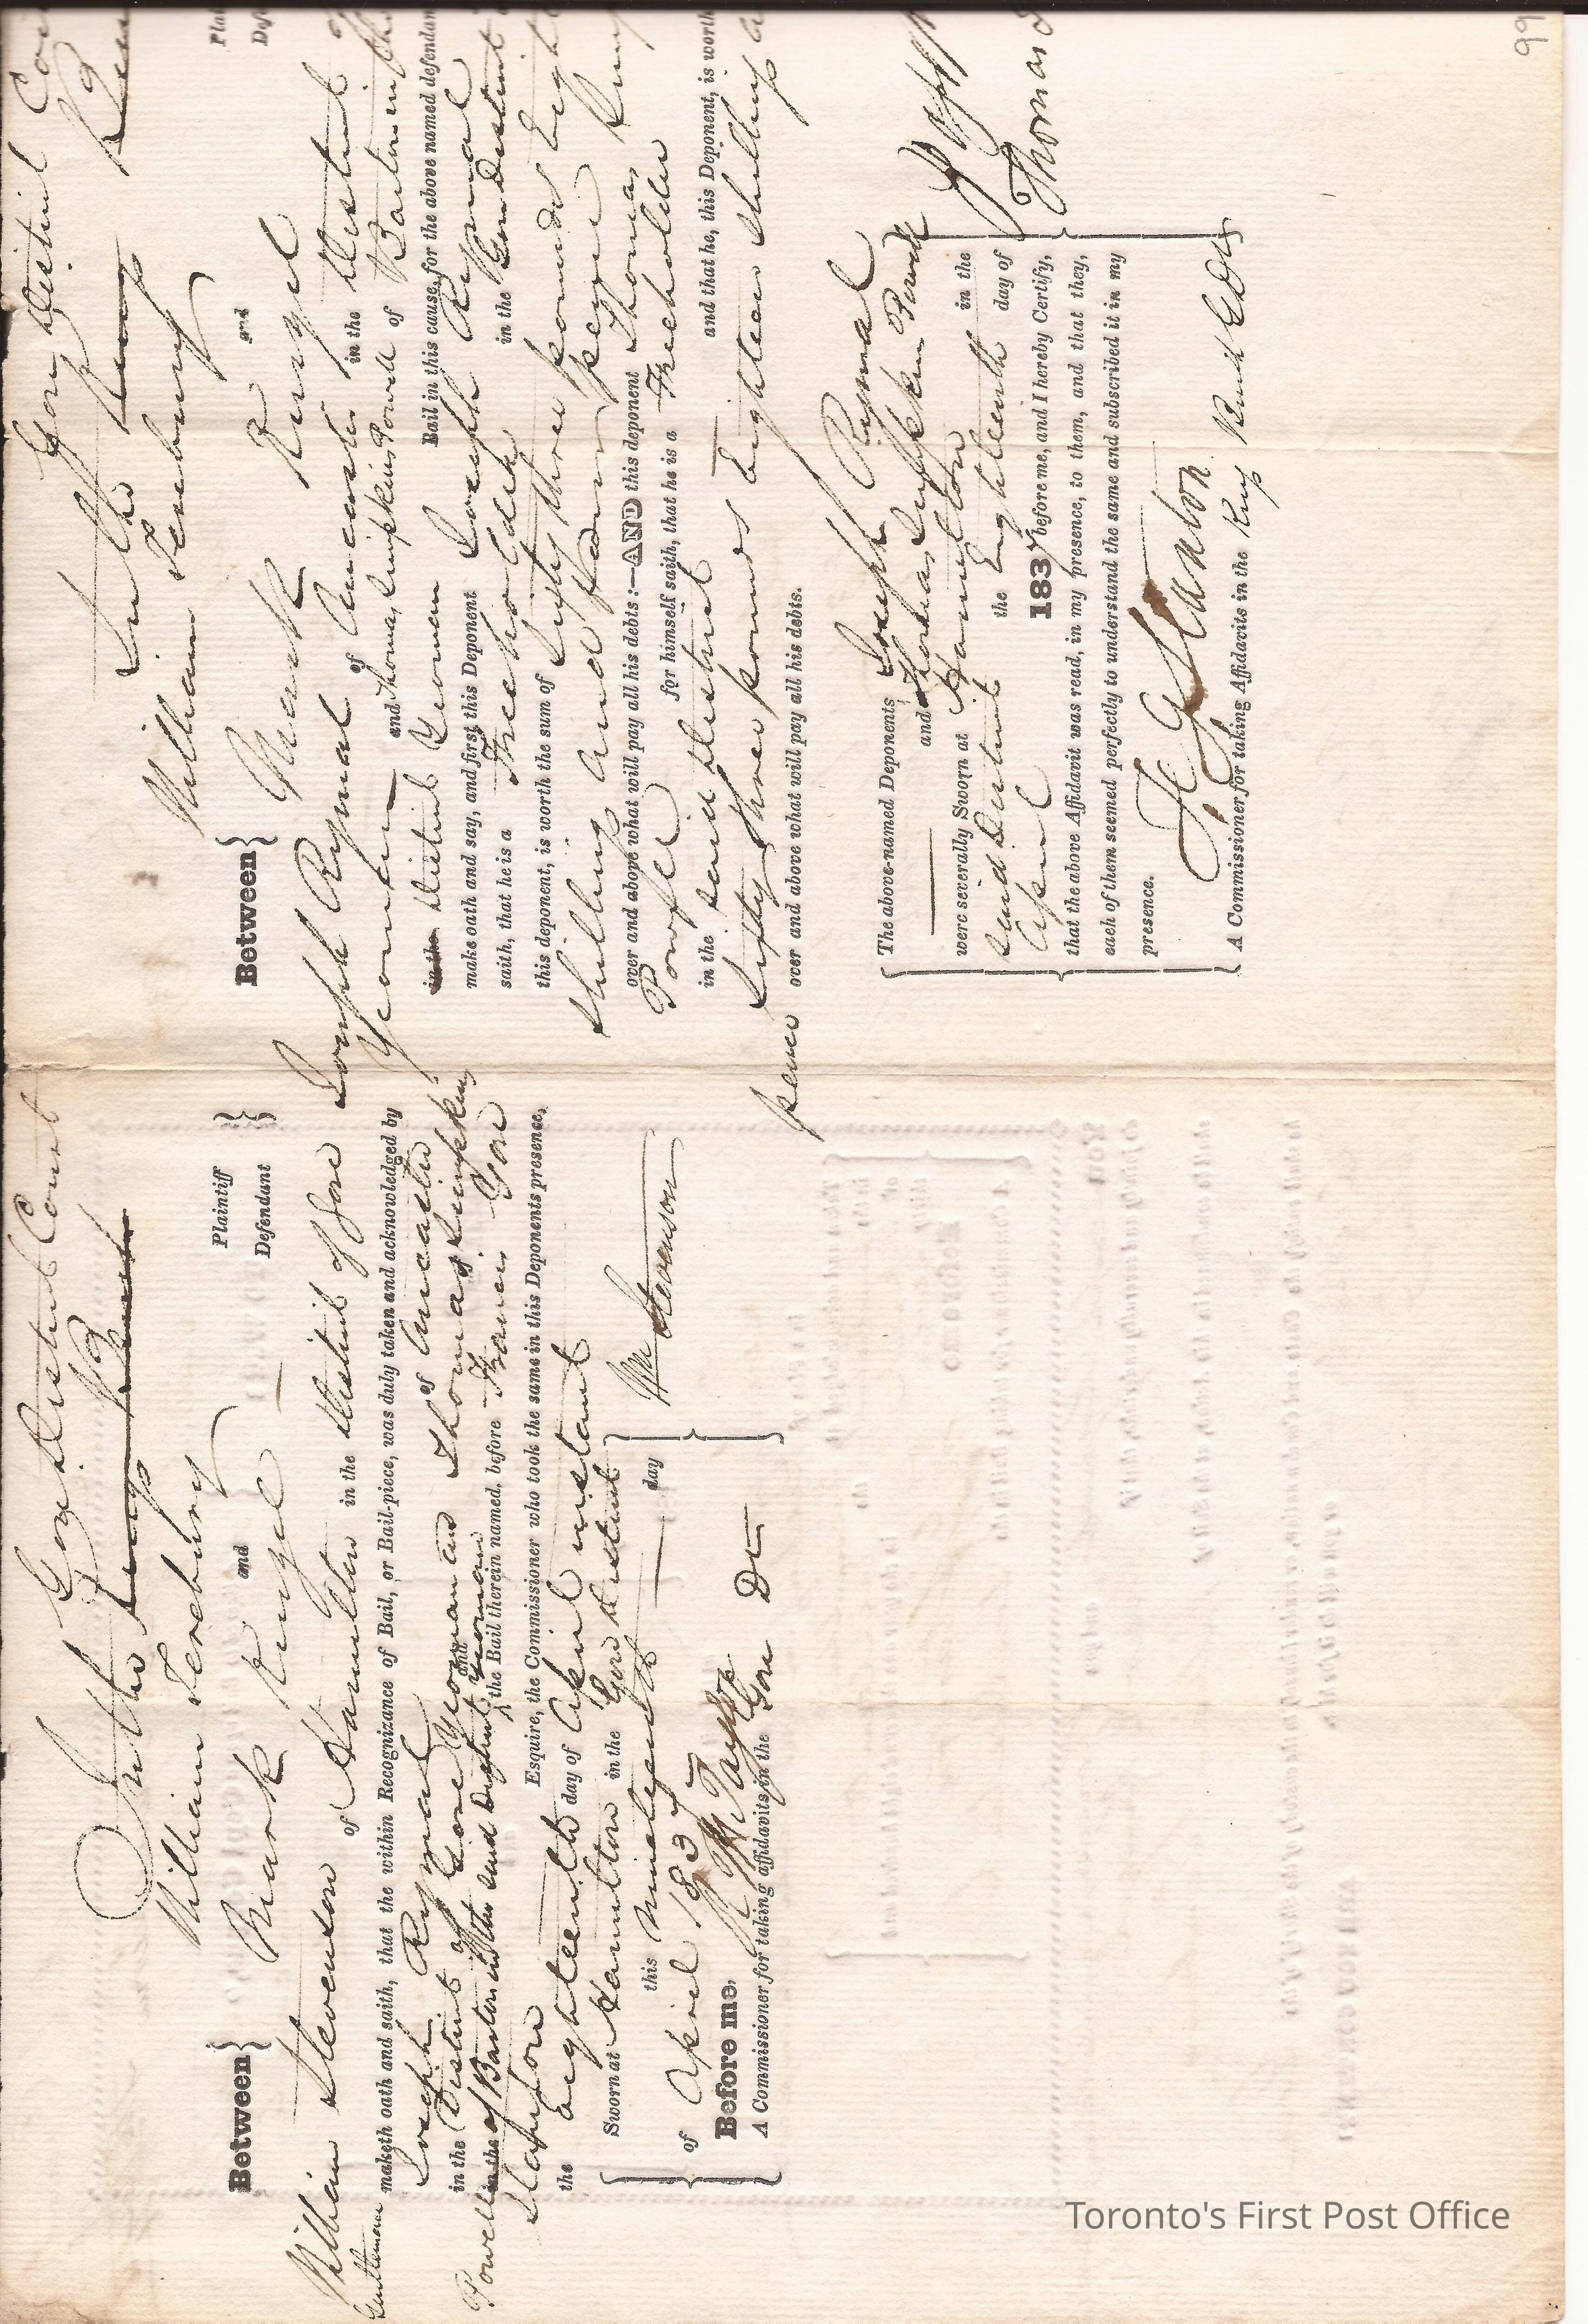 In the Gore District Court
King's Bench
William Terebury
Between Plaintiff
and
Mark Ringel Defendant
William Stevenson of Hamilton in the District of Gore
Gentleman maketh oath and saith, that the within Recognizance of Bail, or Bail-piece, was duly taken and acknowledged by
Joseph Rymal of Ancaster
in the District of Gore Yeoman and Thomas Simpkins
Powell in the of Barton in the said District Yeoman and the Bail therein named, before Francis Gore
Stanton Esquire, the Commissioner who took the same in this Deponents presence,
the eighteenth day of April instant
Sworn at Hamilton in the Gore District
this Nineteenth day
of April 1837 Wm Stevenson
Before me,
A Commissioner for taking affidavits in the Gore Dt
In the Gore District Cou
King's Ben
William Terebury Pla
Between and
Mark Ringel Def
Joseph Rymal of Ancaster in the District
Yeoman and Thomas Simpkins Powell of Barton in the
in the District Yeoman Bail in this cause, for the above named defendan
make oath and say, and first this Deponent Joseph Rymal
saith, that he is a Freeholder in the Gore District
this deponent, is worth the sum of Sixty three pounds Eight
shillings and pence
over and above what will pay all his debts:—AND this deponent Thomas
Powell for himself saith, that he is a Freeholder
in the said District and that he, this Deponent, is worth
Sixty three pounds Eighteen shillings
pence over and above what will pay all his debts.
The above-named Deponents Joseph Rymal
and Thomas Simpkins Powell
were severally Sworn at Hamilton in the
said District the Eighteenth day of
April 1837 before me, and I hereby Certify,
that the above Affidavit was read, in my presence, to them, and that they,
each of them seemed perfectly to understand the same and subscribed it in my
presence.
Thomas S
A Commissioner for taking Affidavits in the King's
99
Toronto's First Post Office